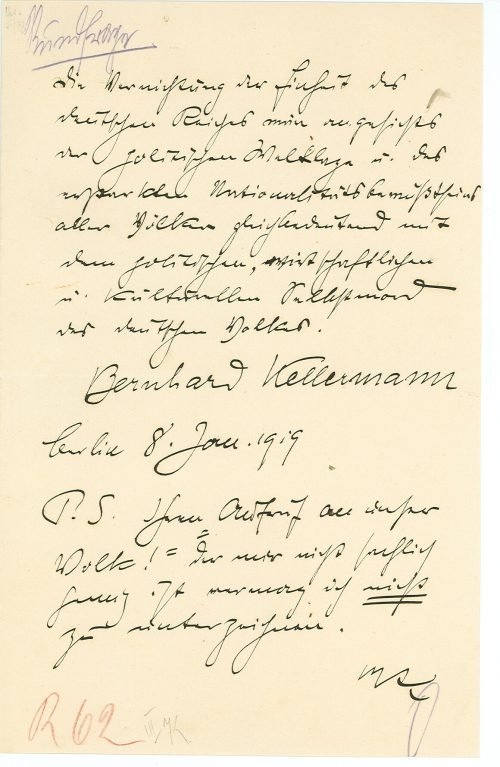 Rundfrage
Die Vernichtung der Einheit des
deutschen Reiches wäre angesichts
der politischen Weltlage u. des
erstarkten Nationalitätsbewußtseins
aller Völker gleichbedeutend mit
dem politischen, wirtschaftlichen
u. kulturellen Selbstmord
des deutschen Volkes.
Bernhard Kellermann
Berlin 8. Jan. 1919
P. S. Ihren Aufruf an unser
Volk! = der mir nicht sachlich
genug ist vermag ich nicht
zu unterzeichnen.
R 62